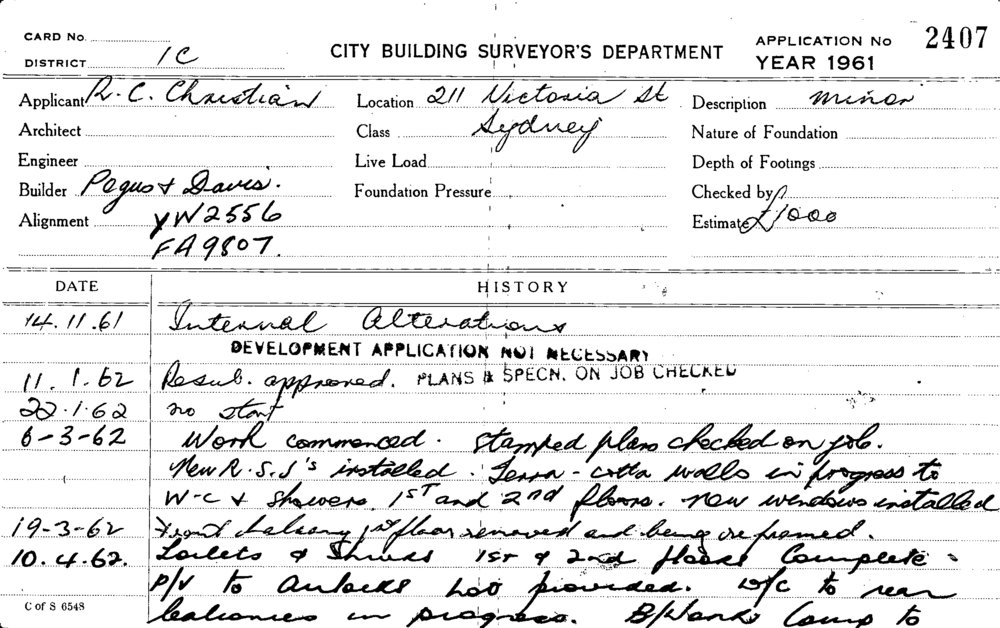 CARD No.
DISTRICT 1C
CITY BUILDING SURVEYOR'S DEPARTMENT
APPLICATION No 2407
YEAR 1961
Applicant R. C. Christian
Location 211 Victoria St
Description minor
Architect
Class Sydney
Nature of Foundation
Engineer
Live Load
Depth of Footings
Builder Pagus & Davis.
Foundation Pressure
Checked by
Alignment YW2556
Estimate £1000
FA9807.
DATE HISTORY
14.11.61 Internal Alterations
DEVELOPMENT APPLICATION NOT NECESSARY
11.1.62 Resub. approved. PLANS & SPECN. ON JOB CHECKED
22.1.62 no start
6-3-62 Work commenced. Stamped plans checked on job.
New R.S.J's installed. Terra-cotta walls in progress to
W-C & Showers 1ST and 2nd floors. New windows installed
19-3-62 Front balcony 1st floor removed and being reframed.
10.4.62. Toilets & 1st & 2nd floors Complete.
P/V to not provided. W/C to rear
balconies in progress. Comp to
C of S 6548